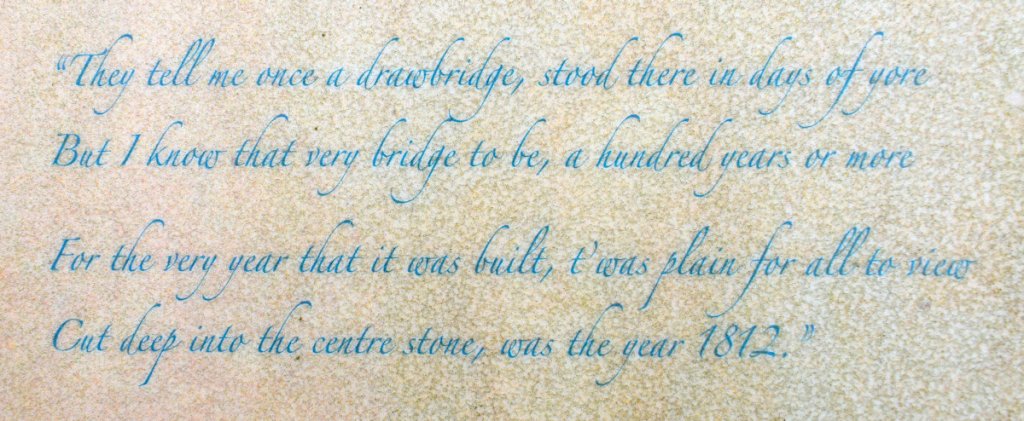 “They tell me once a drawbridge, stood there in days of yore
But I know that very bridge to be, a hundred years or more
For the very year that it was built, t’was plain for all to view
Cut deep into the centre stone, was the year 1812.”